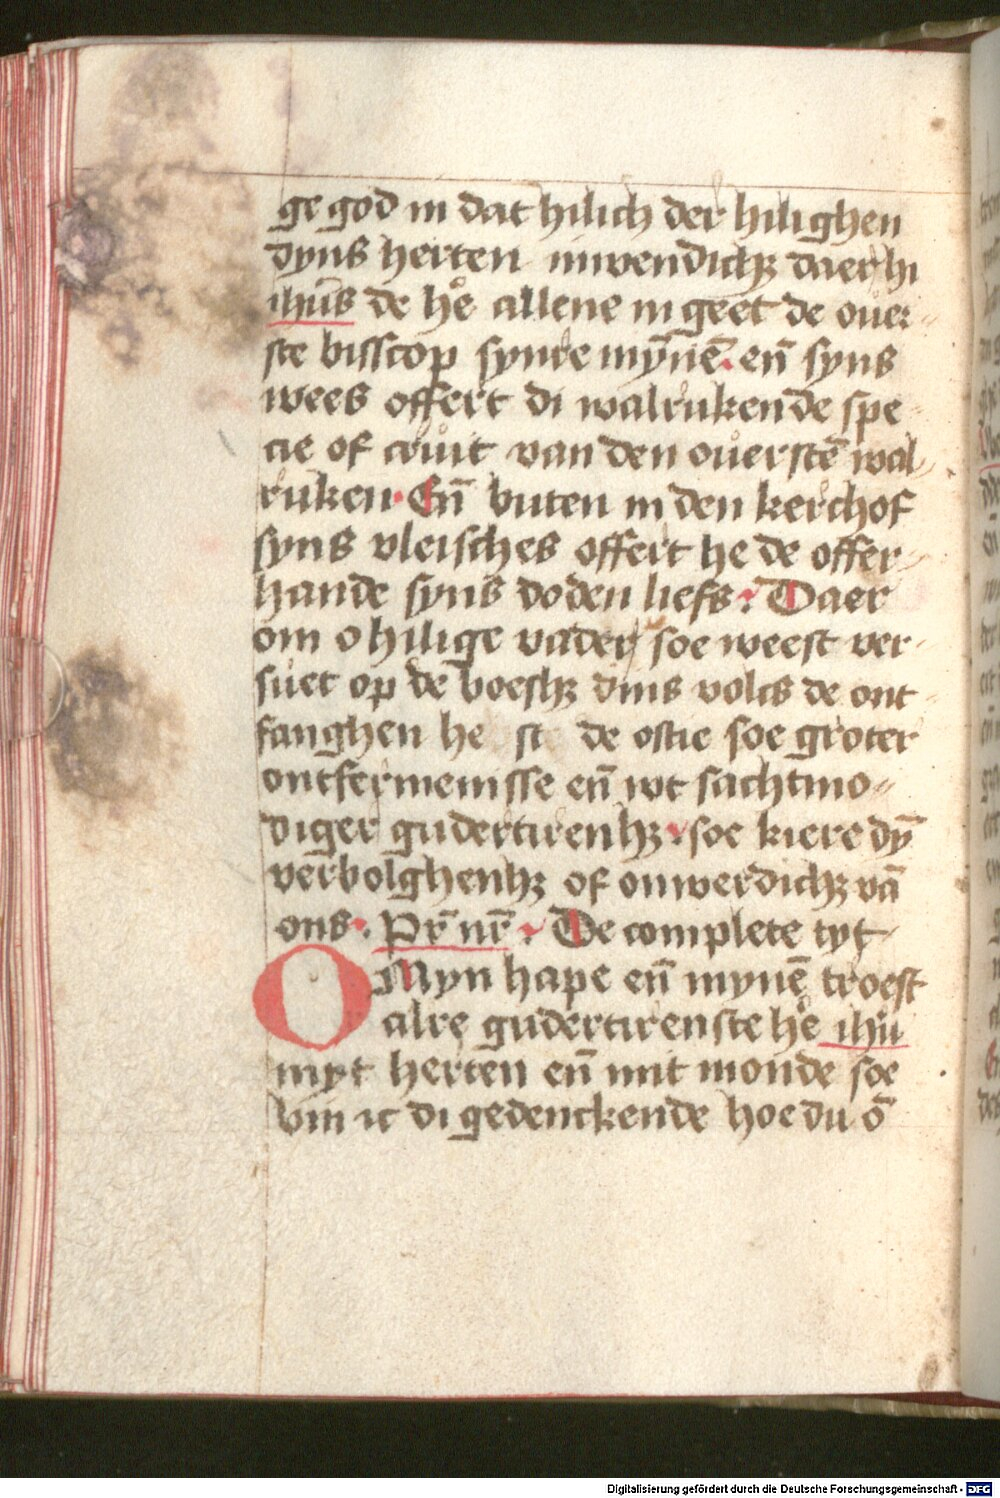 ge god in dat hilich der hilighen
dyns herten inwendichꝫ daer hi
ihūs de he allene in geet de ouer-
ste bisscop synre mȳnē. en̄ syns
wees offert di walrukende spe-
cie of cruit van den ouerstē wal-
ruken. En̄ buten in den kerchof
syns vleisches offert he de offer-
hande syns doden liefs. Daer
om o hilige vader soe weest ver-
suet op de boeshꝫ dins volcs de ont-
fanghen he de ostie soe groter
ontfermenisse en̄ wt sachtmo-
diger gudertirenhꝫ. soe kiere dȳ
verbolghenhꝫ of onwerdichꝫ vā
ons. Pr̄ nr̄. De complete tyt
O Myn hape en̄ mynē troest
alre gudertirenste he ihū
myt herten en̄ mit monde soe
bin ic di gedenckende hoe du ō
Digitalisierung gefördert durch die Deutsche Forschungsgemeinschaft - DFG